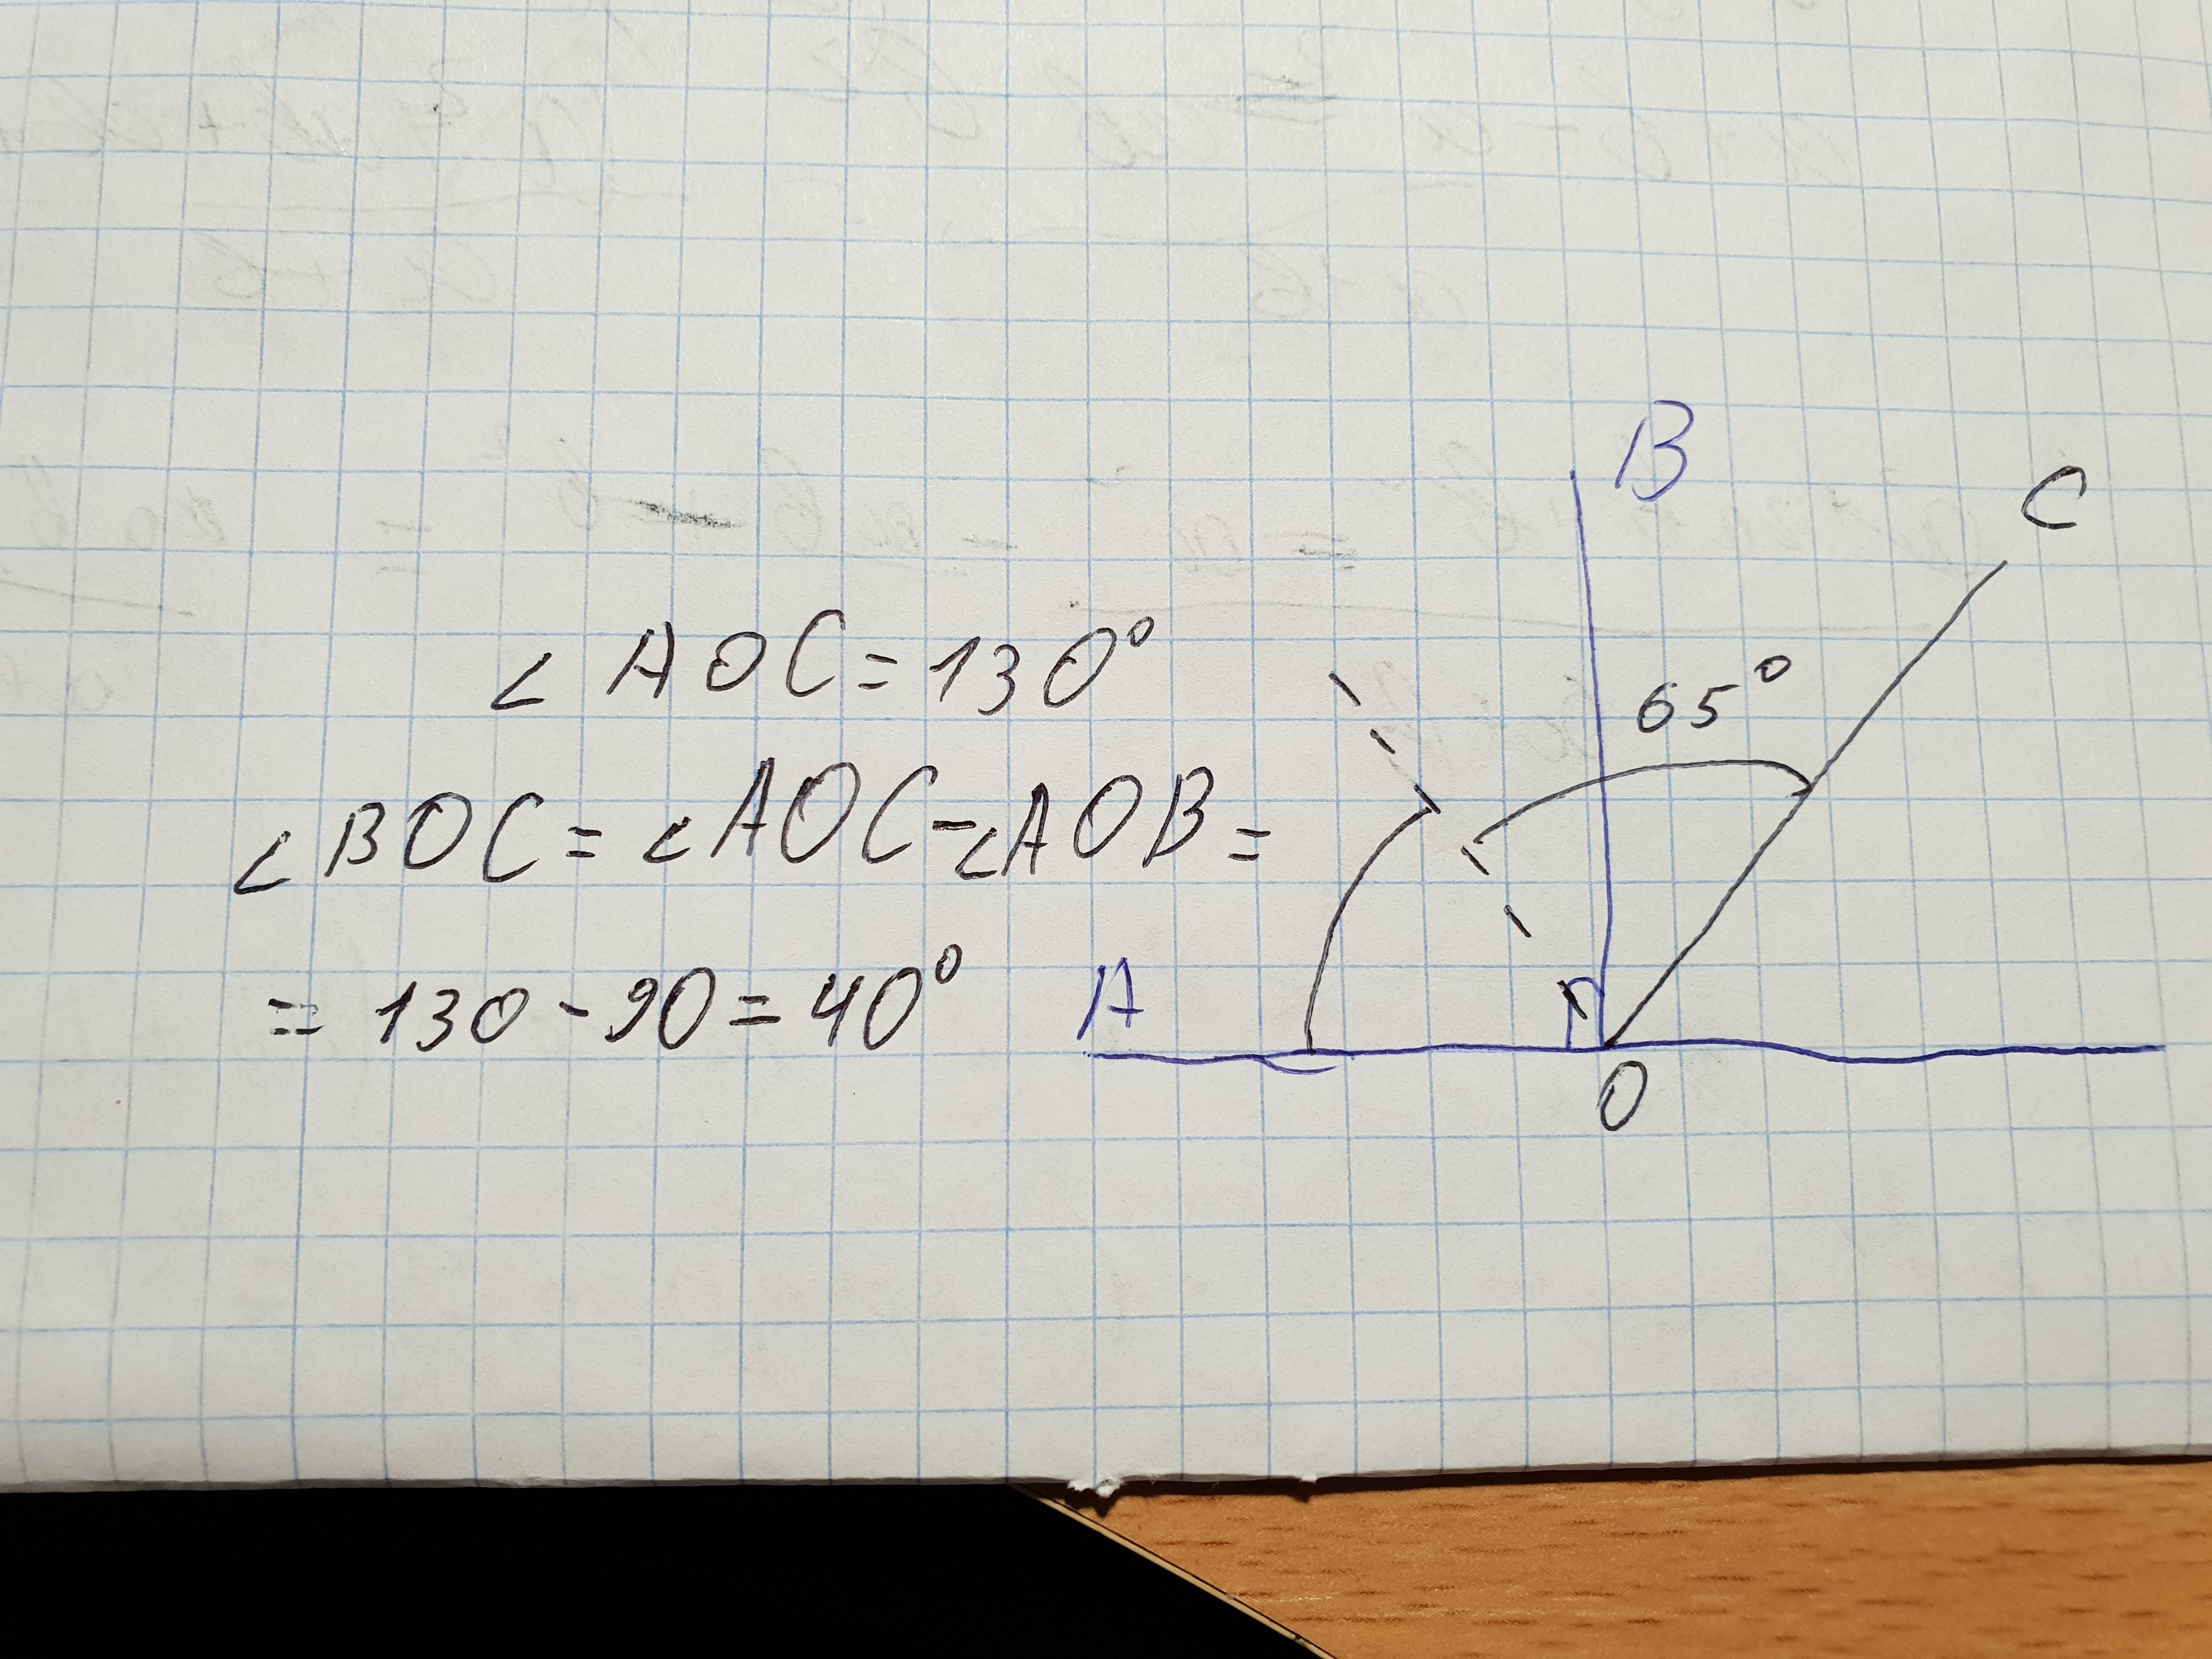 ∠AOC=130°
∠BOC=∠AOC-∠AOB=
=130-90=40°
B
C
65°
A
O